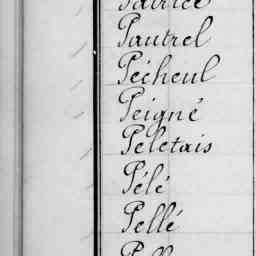 Patrice
Pautrel
Pécheul
Peigné
Peletais
Pélé
Pellé